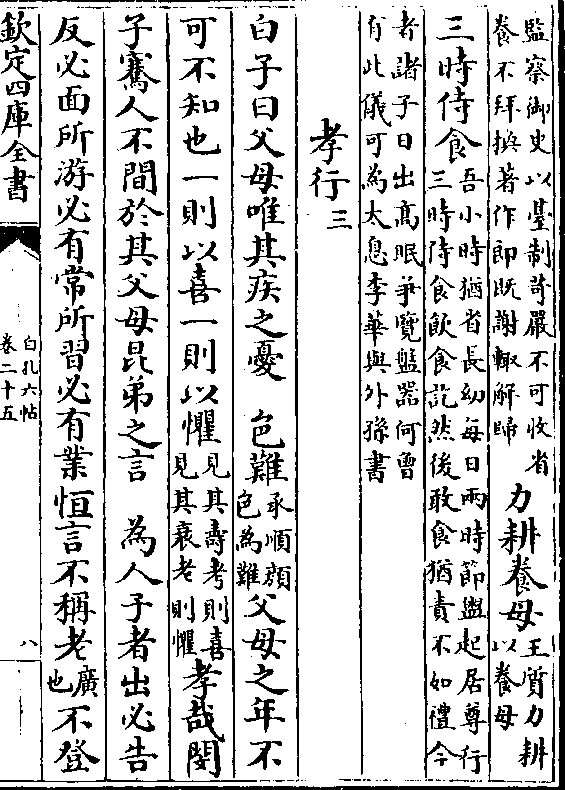 監察御史以臺制苛嚴不可收省養不拜換著作郎既謝輙解歸 力耕養母王質力耕以養母
三時侍食吾小時猶省長幼每日兩時節盥起居尊行三時侍食飲食訖然後敢食猶責不如禮今
者諸子日出高眠爭覽盤器何曾有此儀可為太息李華與外孫書
孝行三
白子曰父母唯其疾之憂 色難承順顔色為難父母之年不
可不知也一則以喜一則以懼見其壽考則喜見其衰老則懼孝哉閔
子騫人不間於其父母昆弟之言 為人子者出必告
反必面所游必有常所習必有業恒言不稱老廣也不登
欽定四庫全書
白孔六帖
卷二十五
八